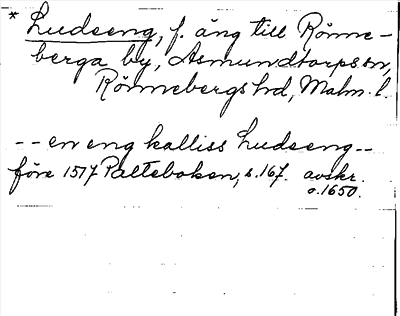 * Ludseng, f. äng till Rönne-
berga by, Asmundtorps sn,
Rönnebergs hd, Malm. l.
-- en eng kalliss Ludseng --
före 1517 Palteboken, s. 167. avskr.
o. 1650.